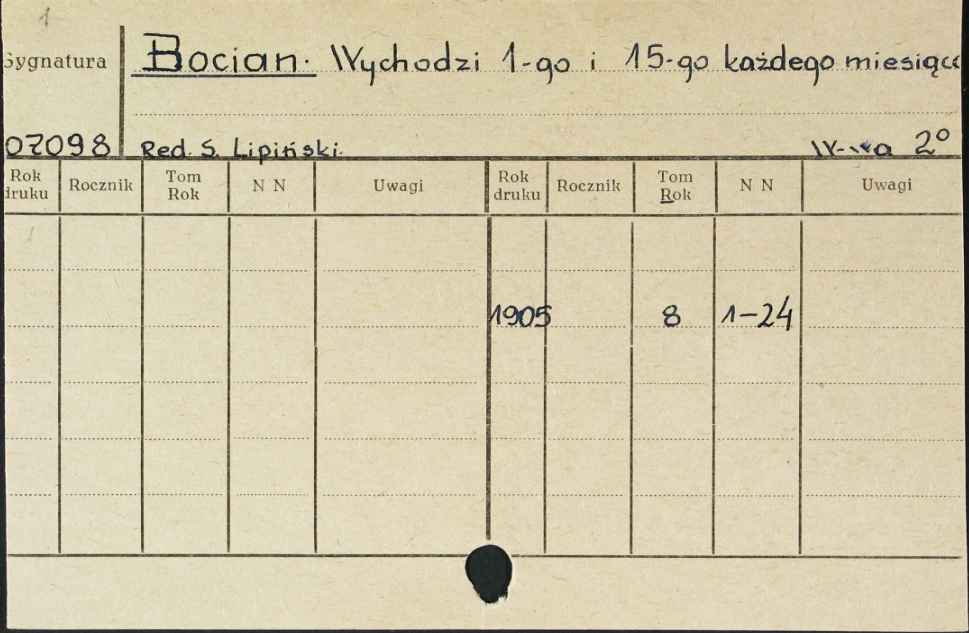 1
Sygnatura
Bocian. Wychodzi 1-go i 15-go każdego miesiąca
07098 Red. S. Lipiński. 2º
Rok druku Rocznik Tom Rok N N Uwagi Rok druku Rocznik Tom Rok N N Uwagi
1905 8 1-24